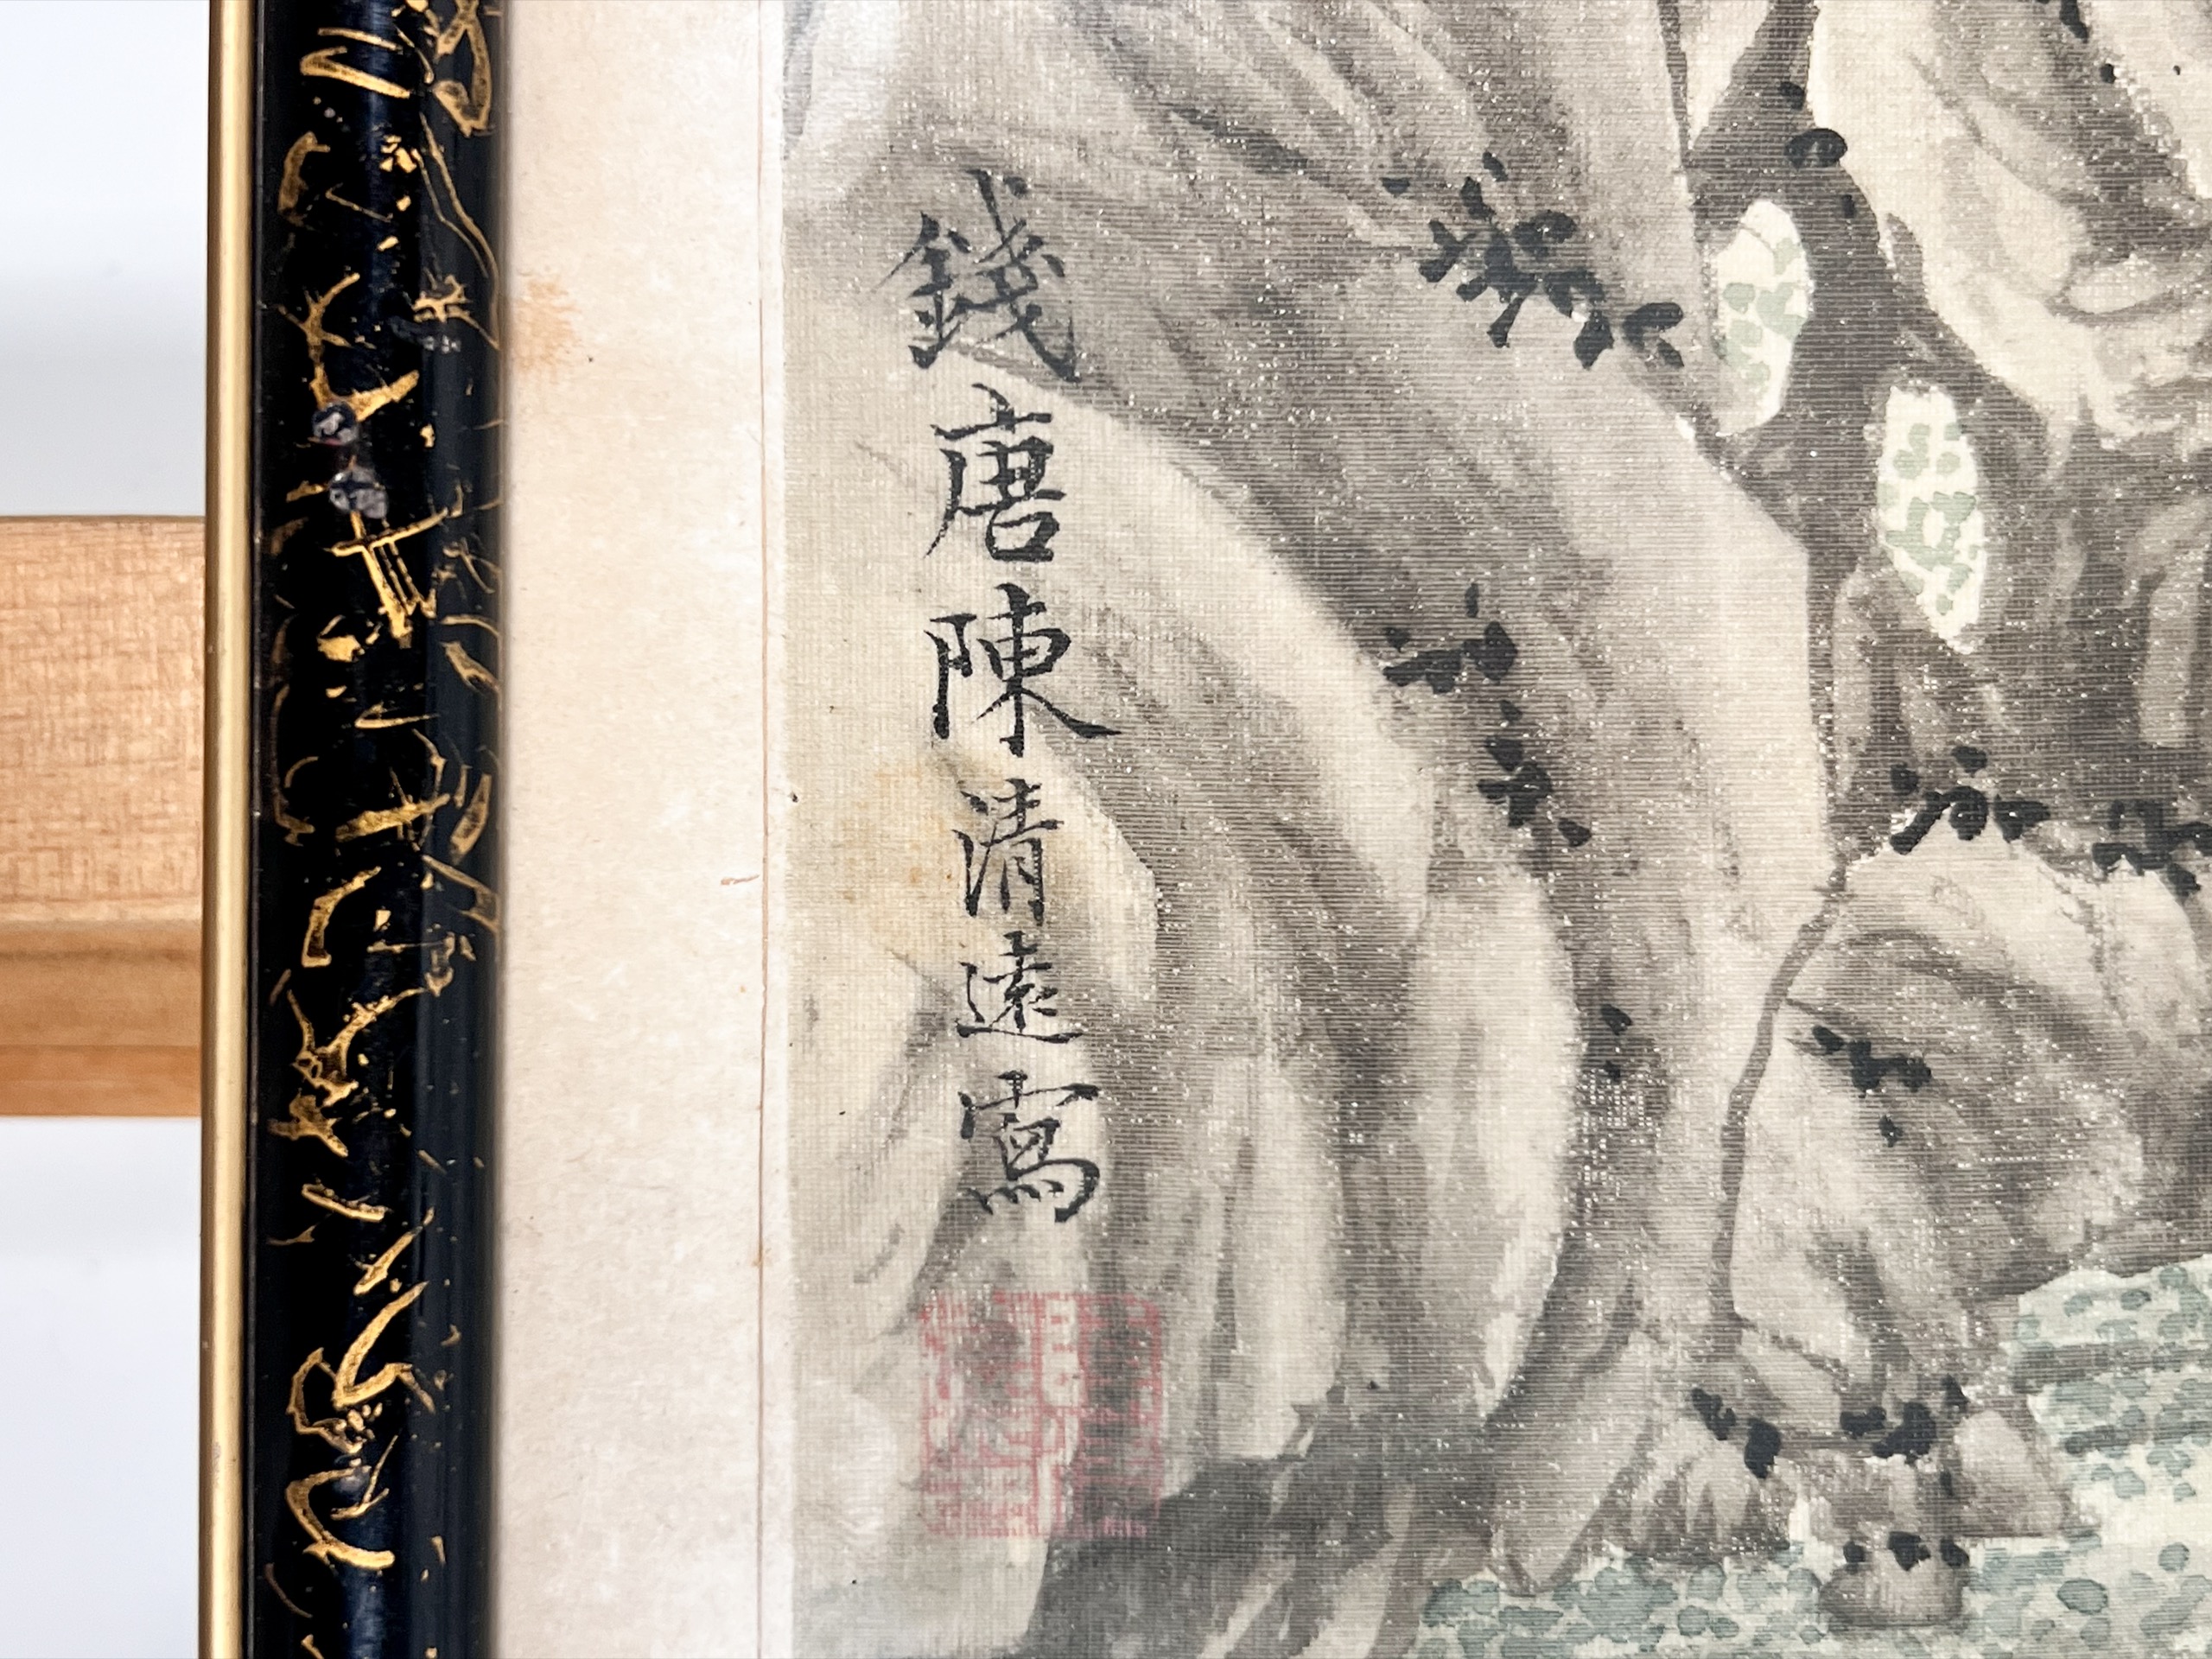 錢唐陳清遠寫